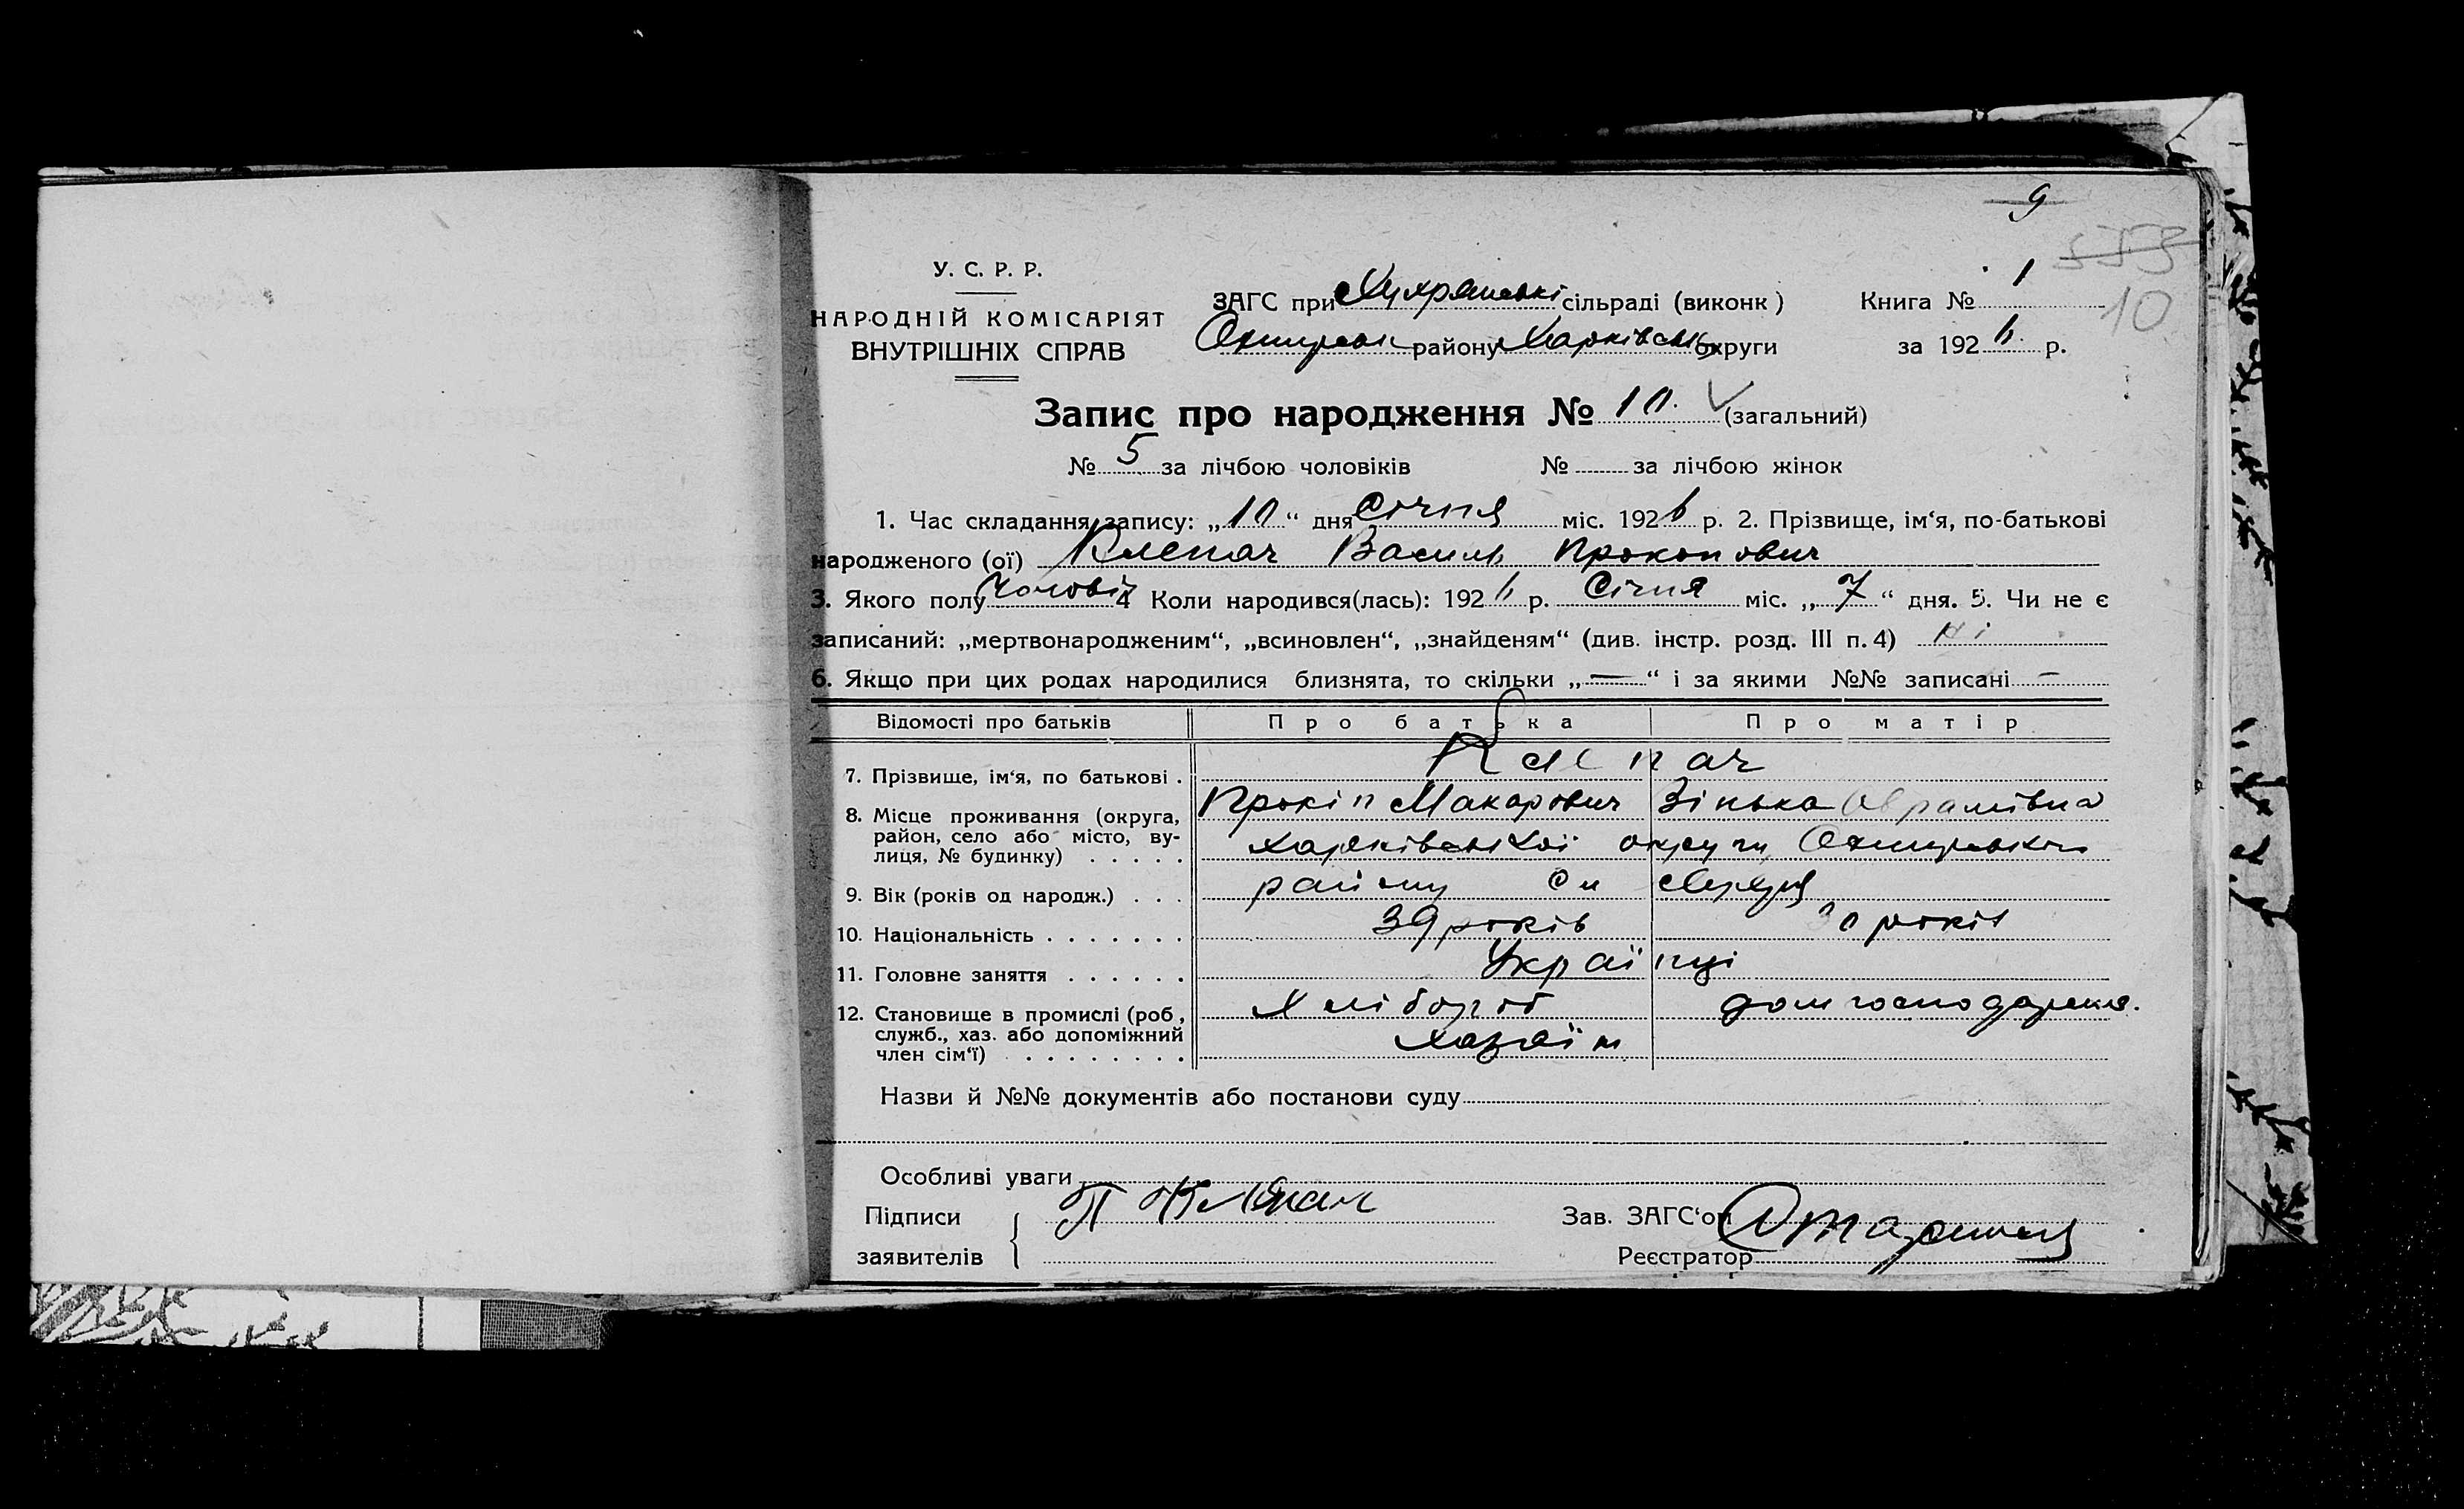 9
353
У. С. Р. Р.
НАРОДНІЙ КОМІСАРІЯТ
ВНУТРІШНІХ СПРАВ
ЗАГС при Хухрянські сільраді (виконк)
Охтирськ району Харківськ округи
Книга № 1
10
за 1926 р.
Запис про народження № 10. (загальний)
№ 5 за лічбою чоловіків № за лічбою жінок
1. Час складання запису: „10“ дня Січня міс. 1926 р. 2. Прізвище, ім‘я, по-батькові
народженого (ої) Клепач Василь Прокопович
3. Якого полу Чоловіч 4 Коли народився(лась): 1926 р. Січня міс. „7“ дня. 5. Чи не є
записаний: „мертвонародженим“, „всиновлен“, „знайденям“ (див. інстр. розд. III п. 4) Ні
6. Якщо при цих родах народилися близнята, то скільки „—“ і за якими №№ записані —
Відомості про батьків Про батька Про матір
7. Прізвище, ім‘я, по батькові . Клепач
Прокіп Макарович Зінька Оврамівна
8. Місце проживання (округа,
район, село або місто, ву-
лиця, № будинку) . . . . .
Харківської округи Охтирського
району
9. Вік (років од народж.) . . .
39 років 30 років
10. Національність . . . . . . .
Українці
11. Головне заняття . . . . . .
Хлібороб дом господарка.
12. Становище в промислі (роб,
служб., хаз. або допоміжний
член сім‘ї) . . . . . . . . .
хазяїн
Назви й №№ документів або постанови суду
Особливі уваги
Підписи
заявителів
П Клепач
Зав. ЗАГС‘ом
Реєстратор